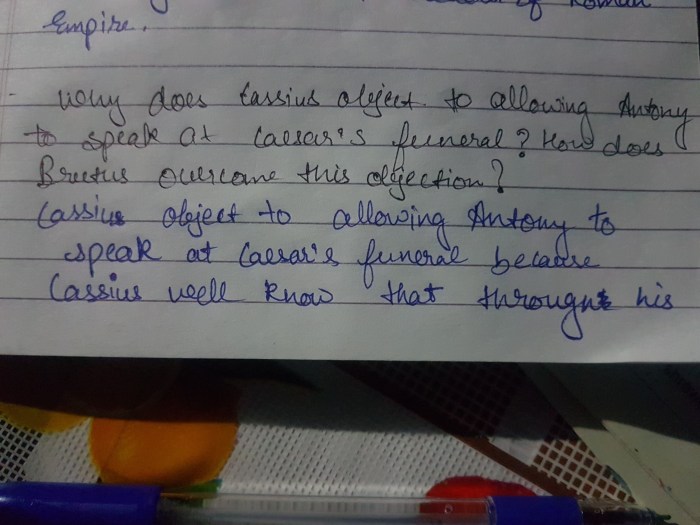 of Roman
Empire.
Why does Cassius object to allowing Antony
to speak at Caesar's funeral? How does
Brutus overcome this objection?
Cassius object to allowing Antony to
speak at Caesar's funeral because
Cassius well know that through his